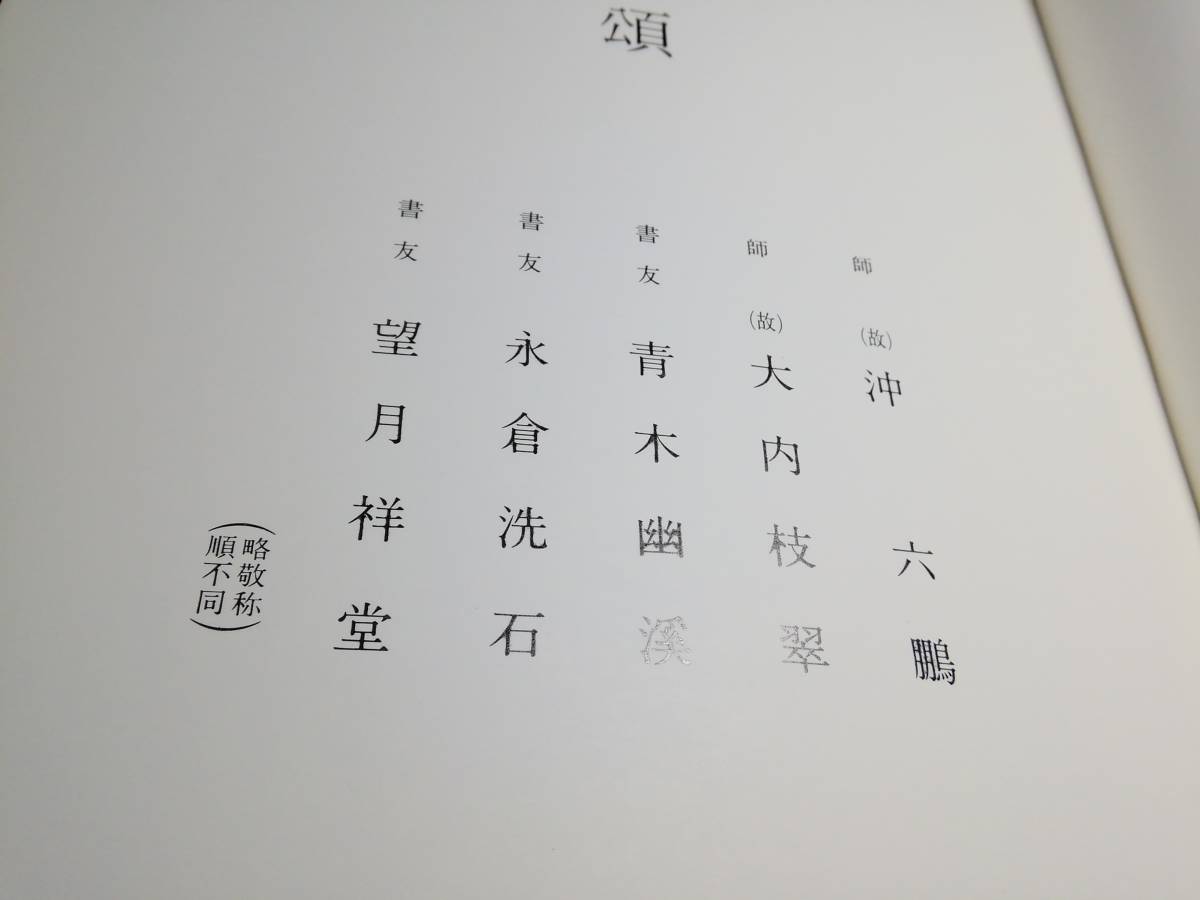 頌
師 (故)沖 六鵬
師 (故)大内枝翠
書友 青木幽溪
書友 永倉洗石
書友 望月祥堂
(略敬称
順不同)